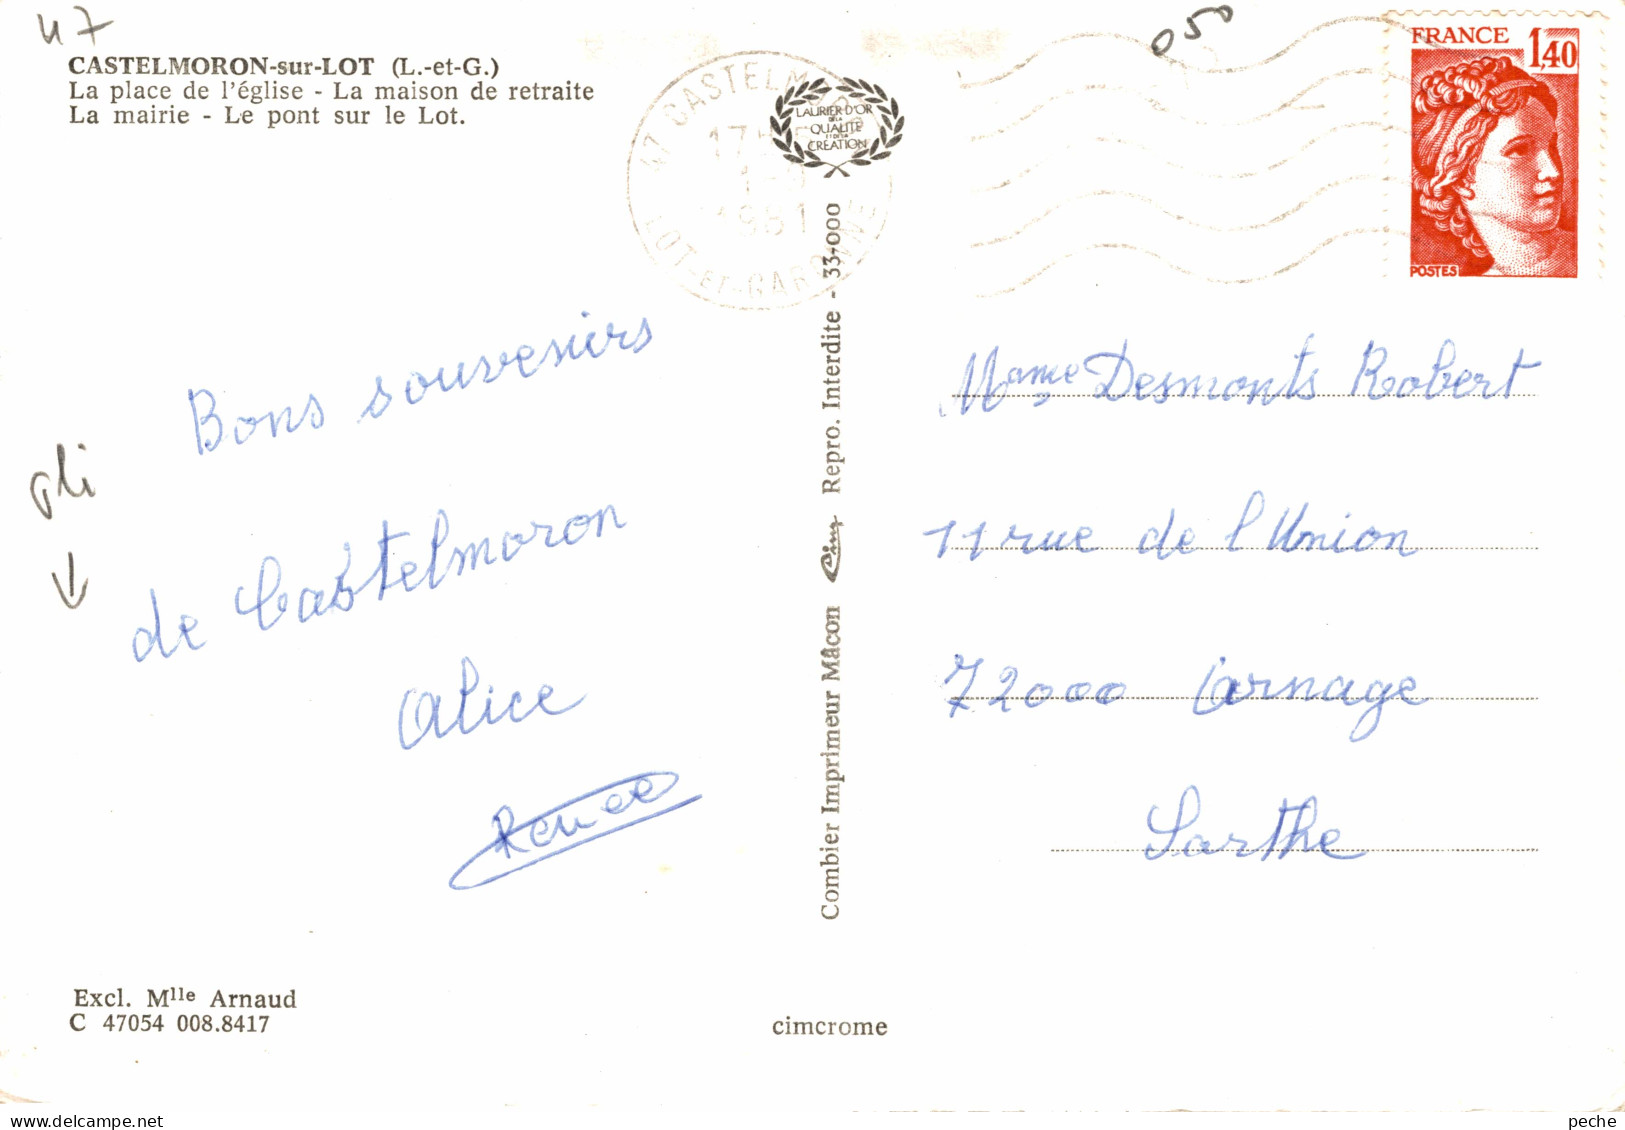 47
CASTELMORON-sur-LOT (L.-et-G.)
La place de l'église - La maison de retraite
La mairie - Le pont sur le Lot.
47 CASTELMORON
17H
1981
LOT-ET-GARONNE
LAURIER D'OR
DE LA
QUALITÉ
ET DE LA
CRÉATION
050
FRANCE 1,40
POSTES
Bons souvenirs
de Castelmoron
Alice
Renée
pli
Combier Imprimeur Mâcon Cim Repro. Interdite - 33-000
Mame Desmonts Robert
11 rue de l'Union
72000 Arnage
Sarthe
Excl. Mlle Arnaud
C 47054 008.8417
cimcrome
peche